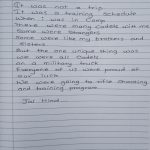 It was not a trip
It was a training schedule
When I was in Camp
There were many Cadets with me
Some were strangers
Some were like my brothers and
sisters
But the one unique thing was
we were all Cadets
on a military truck
Everyone of us were proud of
our luck
We were going to rifle shooting
and training program
Jai Hind